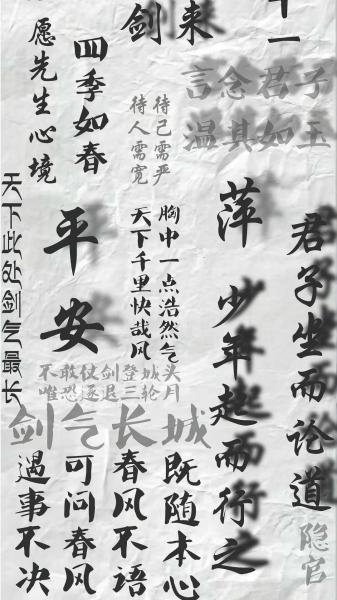 剑来
十一
愿先生心境
四季如春
言念君子
温其如玉
待己需严
待人需宽
天下此处剑气最长
平安
胸中一点浩然气
天下千里快哉风
萍
君子坐而论道
少年起而行之
不敢仗剑登城头
唯恐逐退三轮月
剑气长城
既随本心
春风不语
可问春风
遇事不决
隐官